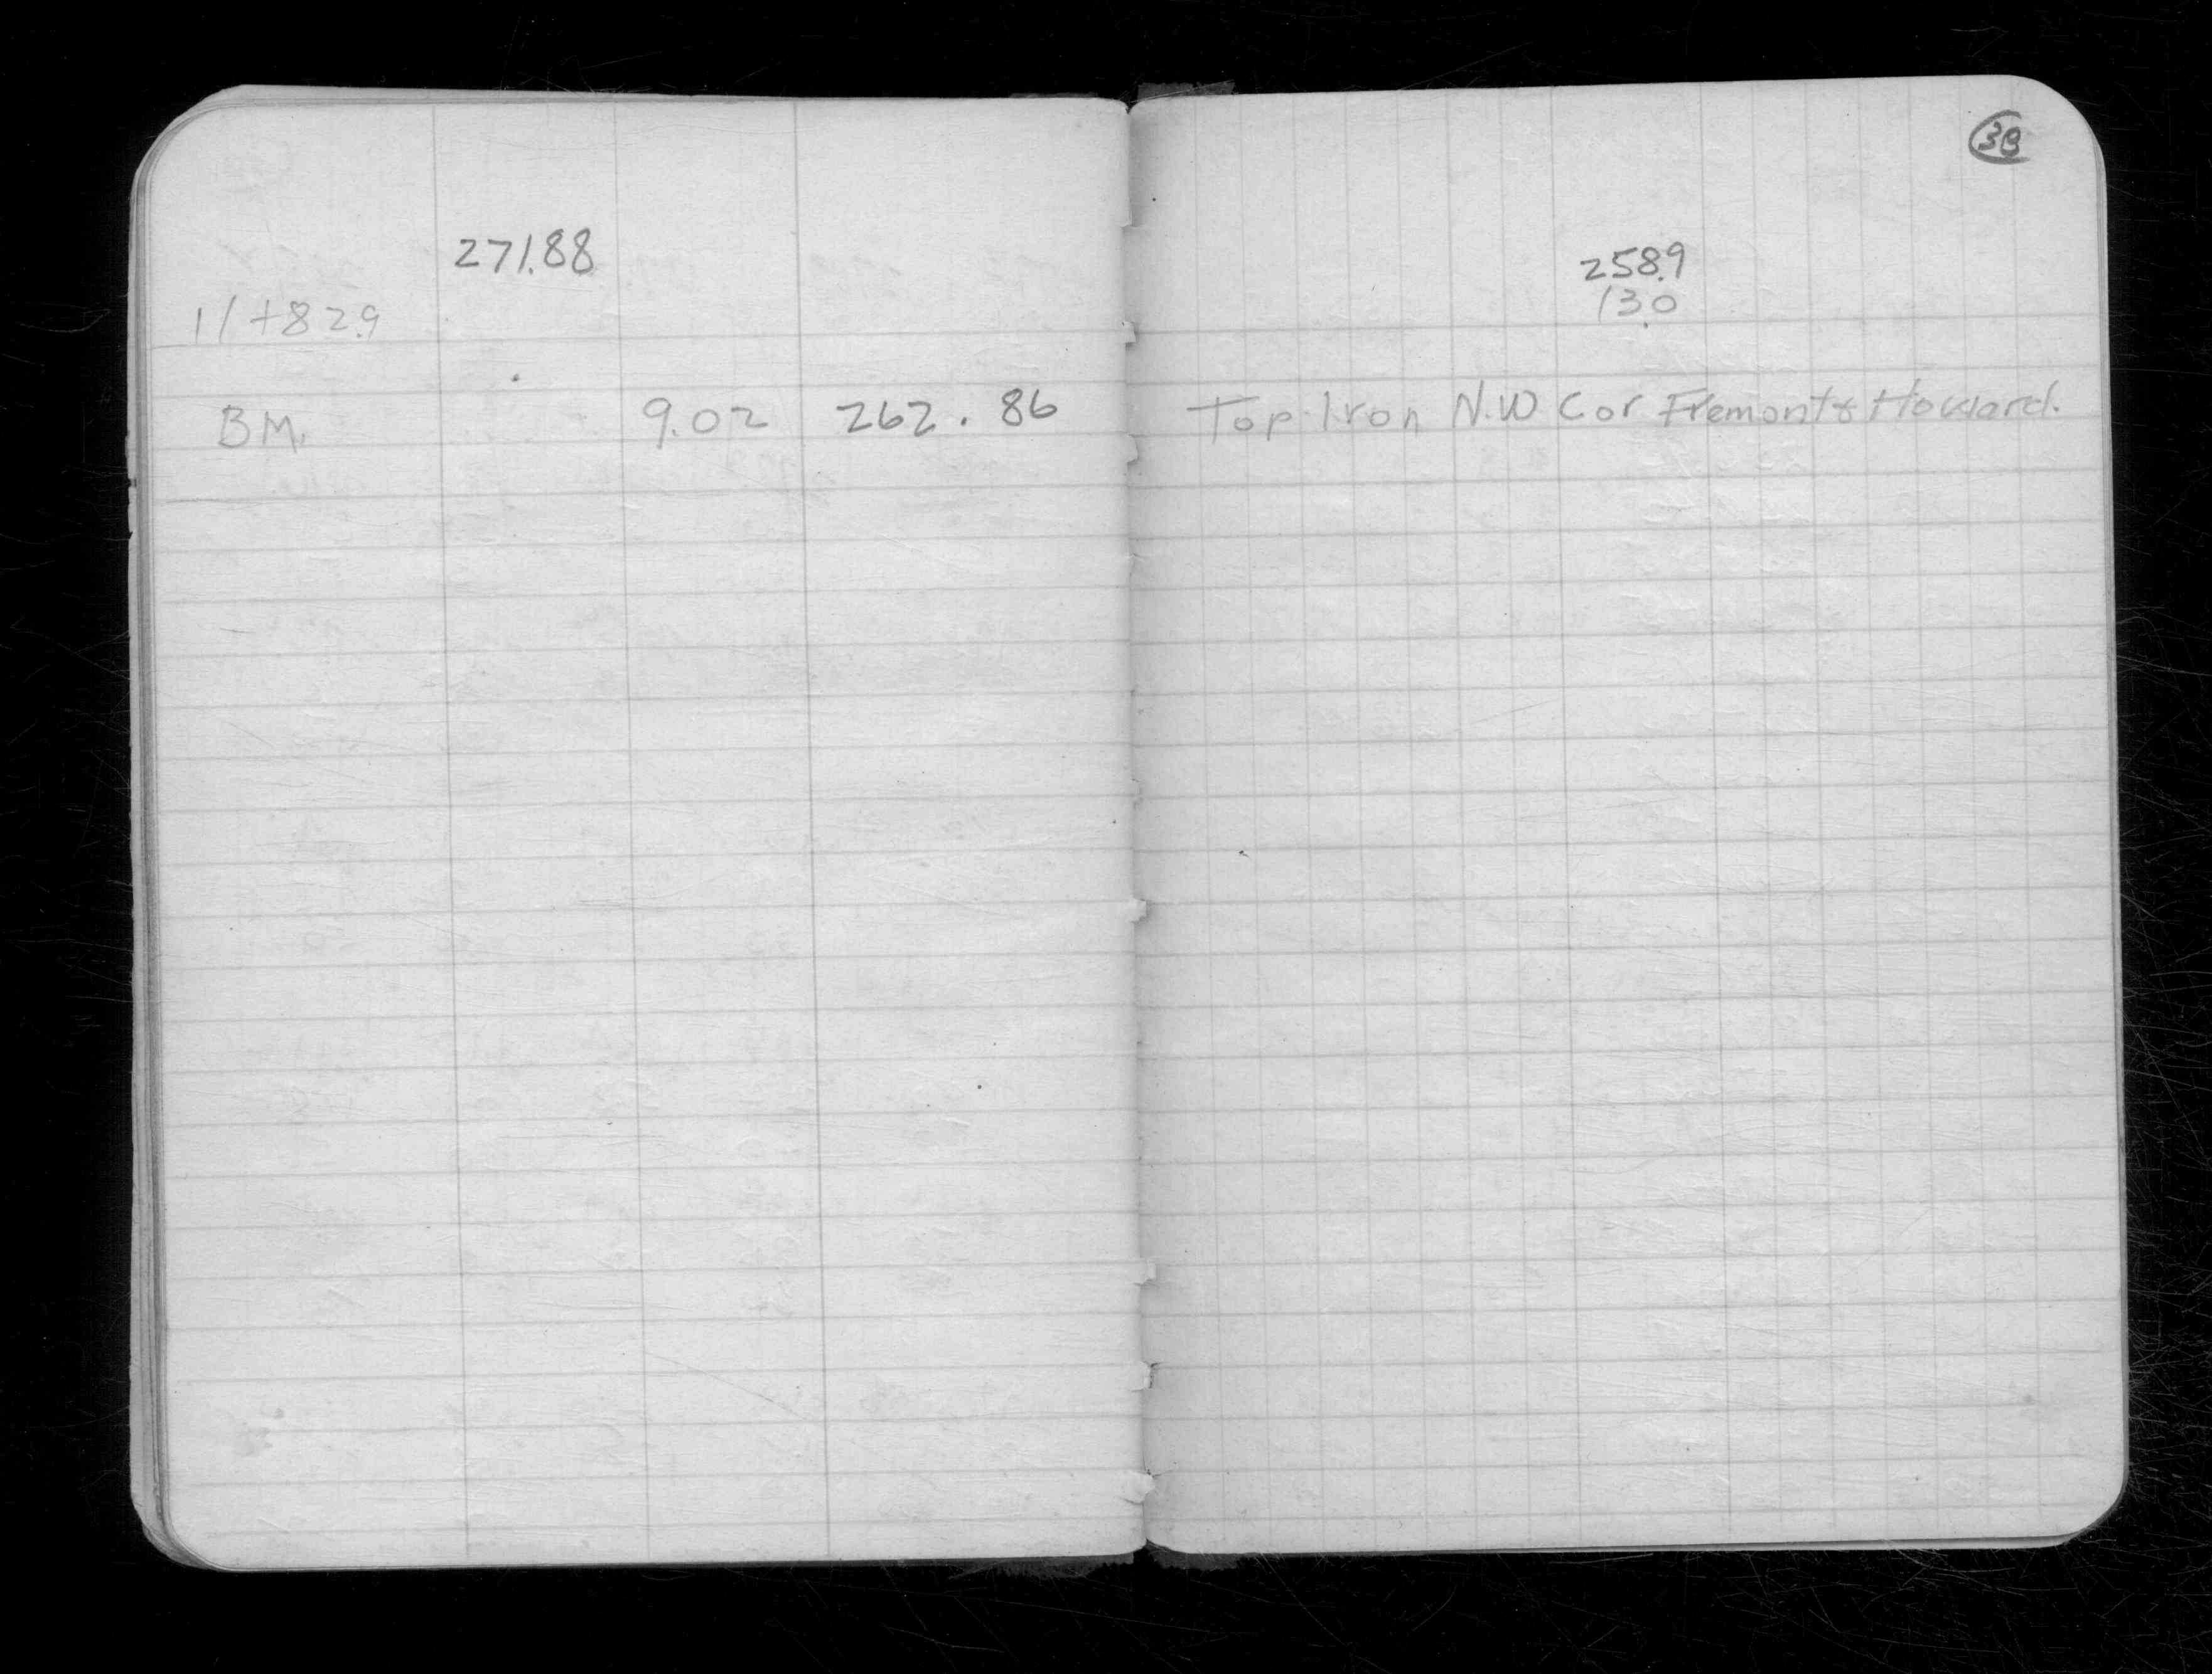 38
271.88
258.9
11+82.9
13.0
BM. 9.02 262.86 Top Iron N.W Cor Fremont & Howard.